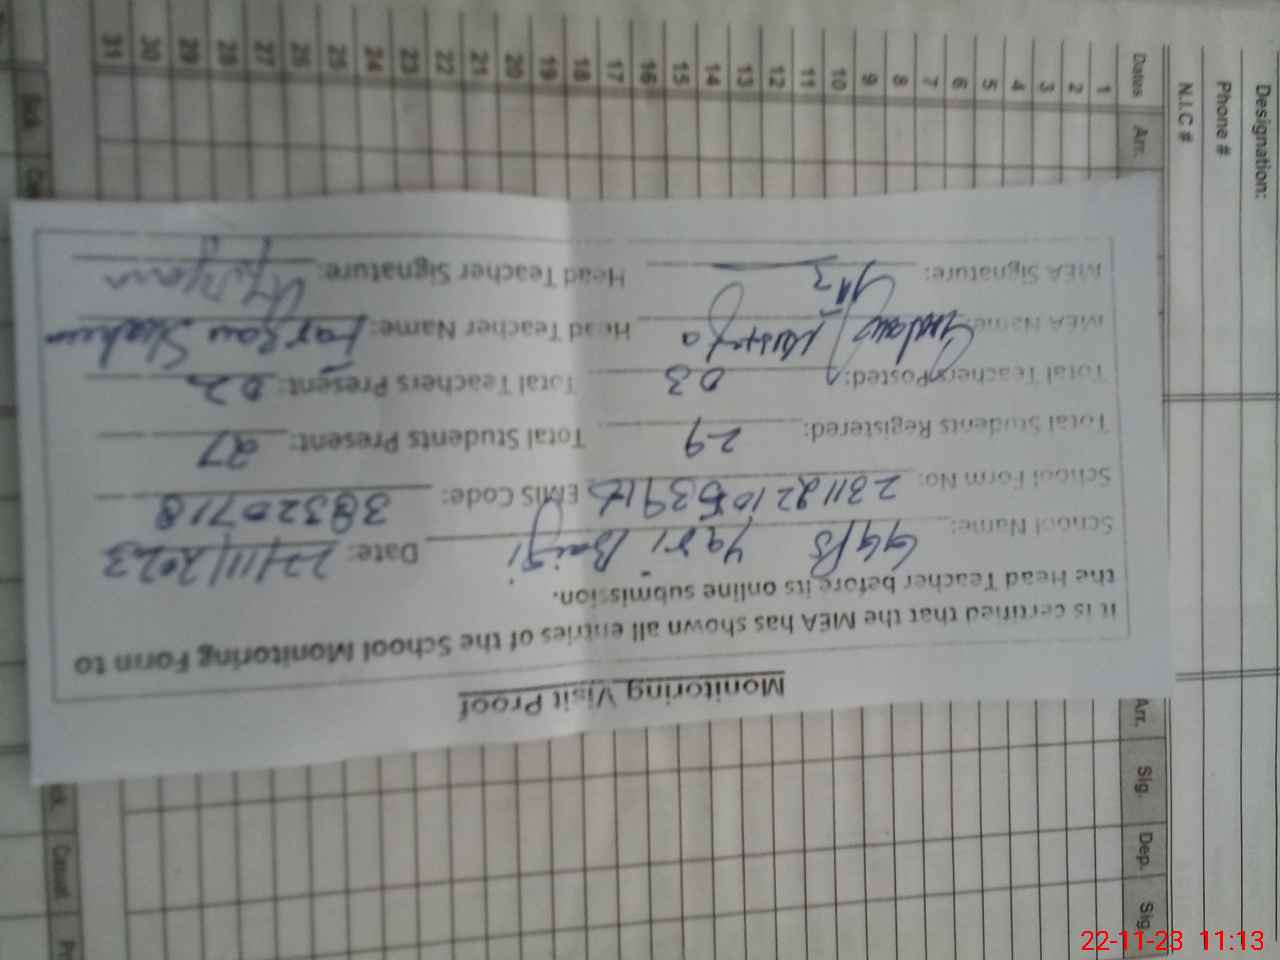 Monitoring Visit Proof
it is certified that the MEA has shown all entries of the School Monitoring Form to
the Head Teacher before its online submission.
School Name: GGPS Yari Baigi Date: 22/11/2023
School Form No: EMIS Code: 38320718
Total Students Registered: 29 Total Students Present: 27
Total Teachers Posted: 03 Total Teachers Present: 02
MEA Name: Head Teacher Name: Farzau Shaheen
MEA Signature: Head Teacher Signature:
Designation:
Phone #
N.I.C #
Dates 1 2 3 4 5 6 7 8 9 10 11 12 13 14 15 16 17 18 19 20 21 22 23 24 25 26 27 28 29 30 31
Arr.
Arr.
Sig.
Dep.
Sig.
Casual
22-11-23 11:13